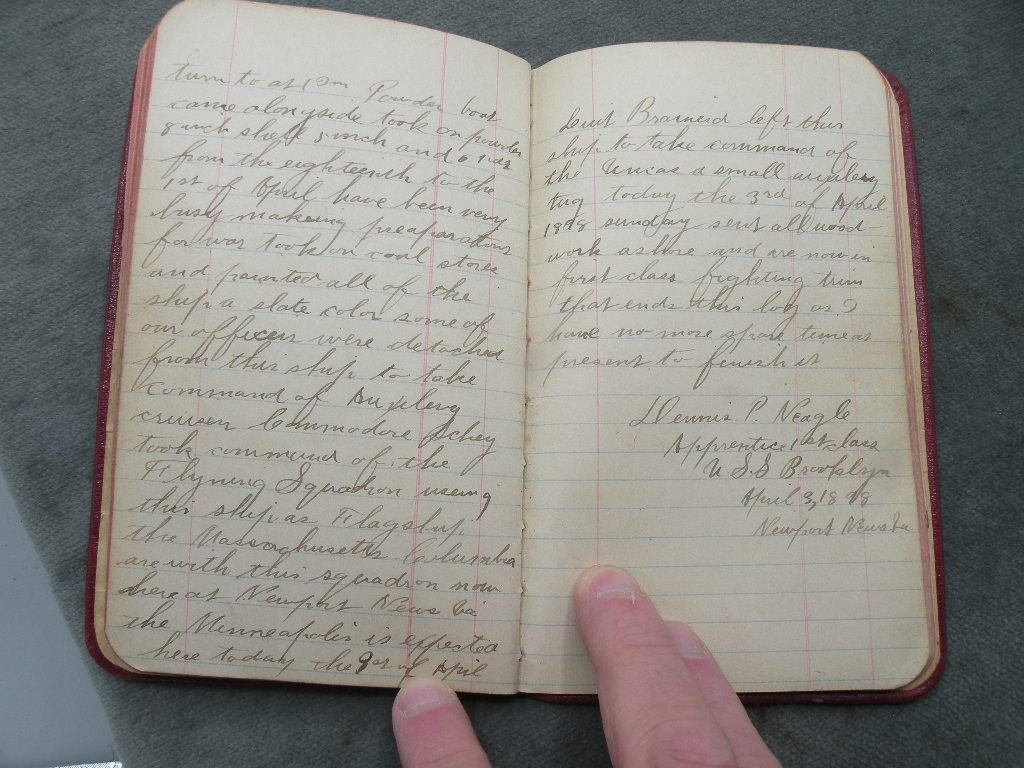 turn to at 1 Pm Powder boat
came alongside took on powder
8 inch shell 5 inch and 6 lbs
from the eighteenth to the
1st of April have been very
busy makeing preaparations
for war took on coal stores
and painted all of the
ship a slate color some of
our officers were detached
from this ship to take
command of Auxilery
cruiser Commodore Schey
took command of the
Flyning Squadron useing
this ship as Flagship.
the Massachusetts Columbia
are with this squadron now
here at Newport News Va
the Minneapolis is expected
here today the of April
Leiut Brainerd left this
ship to take command of
the Uncas a small auxilery
tug today the 3rd of April
1898 sunday sent all wood-
work ashore and are now in
first class fighting trim
that ends this log as I
have no more spair time at
present to finish it
Dennis P. Neagle
Apprentice 1st class
U.S.S Brooklyn
April 3, 1898
Newport News Va